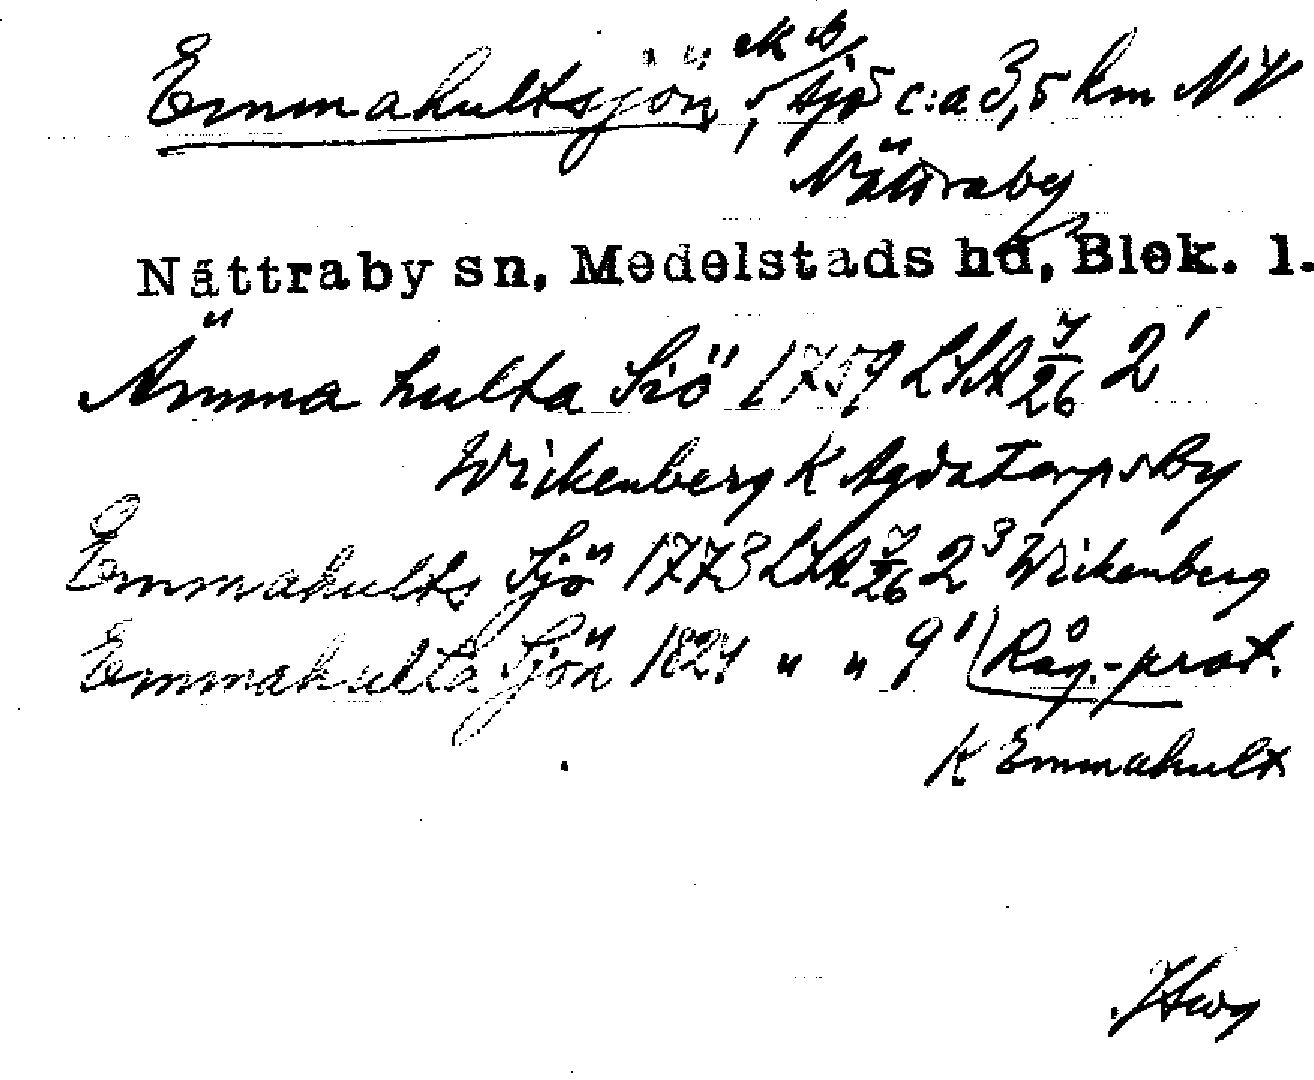 Emmahultsjön, sjö c:a 3,5 km NV
Nättraby
Nättraby sn, Medelstads hd, Blek. l.
Ämma hulta Siö 1759 LSA 7/26 2¹
Wickenberg K Agdatorps By
Emmahults Sjö 1773 LSA 7/26 2³ Wickenberg
Emmahulta Sjön 1824 " " 9¹ (Råg.-prot.
K Emmahult